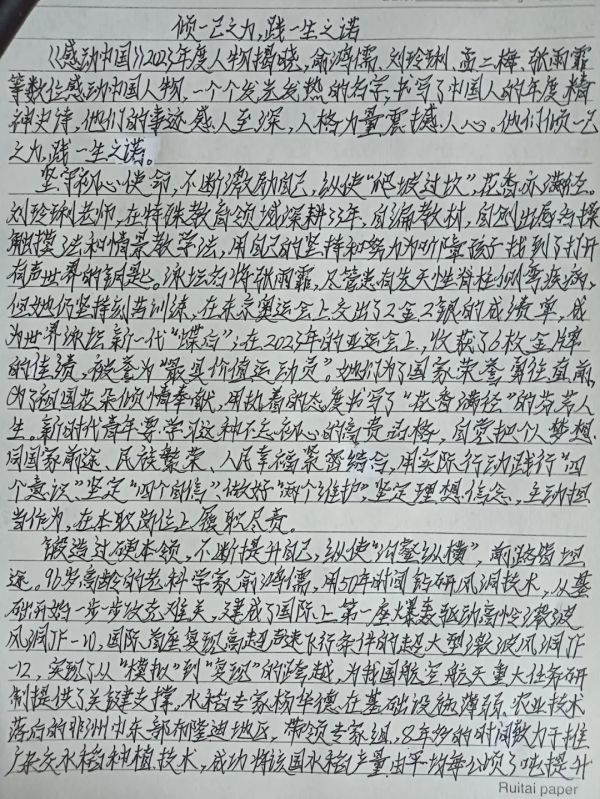 倾一己之力,践一生之诺
《感动中国》2023年度人物揭晓,俞鸿儒、刘玲琍、孟二梅、张雨霏
等数位感动中国人物,一个个发光发热的名字,书写了中国人的年度精
神史诗,他们的事迹感人至深,人格力量震撼人心。他们倾一己
之力,践一生之诺。
坚守初心使命,不断激励自己,纵使“爬坡过坎”,花香亦满径。
刘玲琍老师,在特殊教育领域深耕33年,自编教材,自创出感官操
触摸法和情景教学法,用自己的坚持和努力为听障孩子找到了打开
有声世界的钥匙。泳坛名将张雨霏,尽管患有先天性脊柱侧弯疾病,
但她仍坚持刻苦训练,在东京奥运会上交出了2金2银的成绩单,成
为世界泳坛新一代“蝶后”;在2023年的亚运会上,收获了6枚金牌
的佳绩,被誉为“最具价值运动员”。她们为了国家荣誉勇往直前,
为了祖国花朵倾情奉献,用执着的态度书写了“花香满径”的芬芳人
生。新时代青年要学习这种不忘初心的高贵品格,自觉把个人梦想
同国家前途、民族繁荣、人民幸福紧密结合,用实际行动践行“四
个意识”、坚定“四个自信”、做好“两个维护”,坚定理想信念,主动担
当作为,在本职岗位上履职尽责。
锻造过硬本领,不断提升自己,纵使“沟壑纵横”,前路皆坦
途。96岁高龄的老科学家俞鸿儒,用50年时间钻研风洞技术,从基
础开始一步一步攻克难关,建成了国际上第一座爆轰驱动高焓激波
风洞JF-10,国际首座复现高超声速飞行条件的超大型激波风洞JF
-12,实现了从“模拟”到“复现”的跨越,为我国航空航天重大任务研
制提供了关键支撑,水稻专家杨华德在基础设施薄弱、农业技术
落后的非洲中东部布隆迪地区,带领专家组,8年多的时间致力于推
广杂交水稻种植技术,成功将该国水稻产量由平均每公顷3吨提升
Ruitai paper